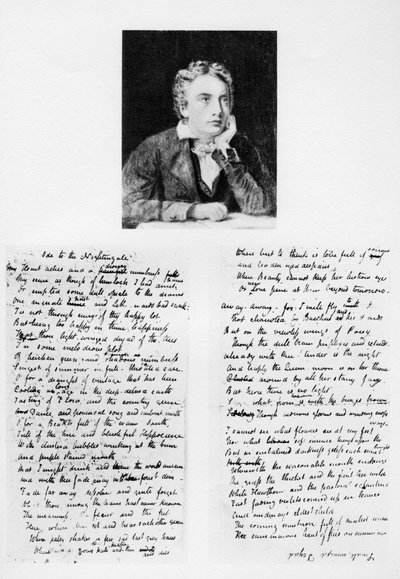 Ode to the Nightingale
My Heart aches and a numbness
My sense as though of hemlock I had drunk
Or emptied some dull opiate to the drains
One minute and Lethe wards had sunk
Tis not through envy of thy happy lot
But being too happy in thine happiness
That thou light winged dryad of the trees
In some melodious plot
Of beechen green and shadows numberless
Singest of summer in full throated ease
O for a draught of vintage that has been
Cooling an age in the deep delved earth
Tasting of Flora and the country green
And Dance, and provencal song and sunburnt mirth
O for a Beaker full of the warm South,
Full of the true and blushful Hippocrene
With cluster'd bubbles winking at the brim
And purple stained mouth
That I might drink and leave the world unseen
And with thee fade away into forest dim
Fade far away dissolve and quite forget
What thou among the leaves hast never known
The weariness the fever and the fret
Here, where Men sit and hear each other groan
Where palsy shakes a few sad last grey hairs
Where youth grows pale and thin and
Where but to think is to be full of sorrow
And leaden eyed despairs
Where Beauty cannot keep her lustrous eyes
Or new love pine at them beyond tomorrow.
Away-away-for I will fly to thee
Not charioted by Bacchus and his Pards
But on the viewless wings of Poesy
Though the dull brain perplexes and retards
Already with thee! tender is the night
And haply the Queen moon is on her throne
around by all her starry fays
But here there is no light
what from is with the breezes blown
Through verdurous glooms and winding mossy ways
I cannot see what flowers are at my feet
Nor what soft incense hangs upon the boughs
But in embalmed darkness guess each sweet
the seasonable month endows
The grass the thicket and the fruit tree wild
White Hawthorn and the pastoral eglantine
Fast fading violets covered up in leaves
And midmays eldest child
The coming muskrose full of wine
The murmurous haunt of flies on summer eves